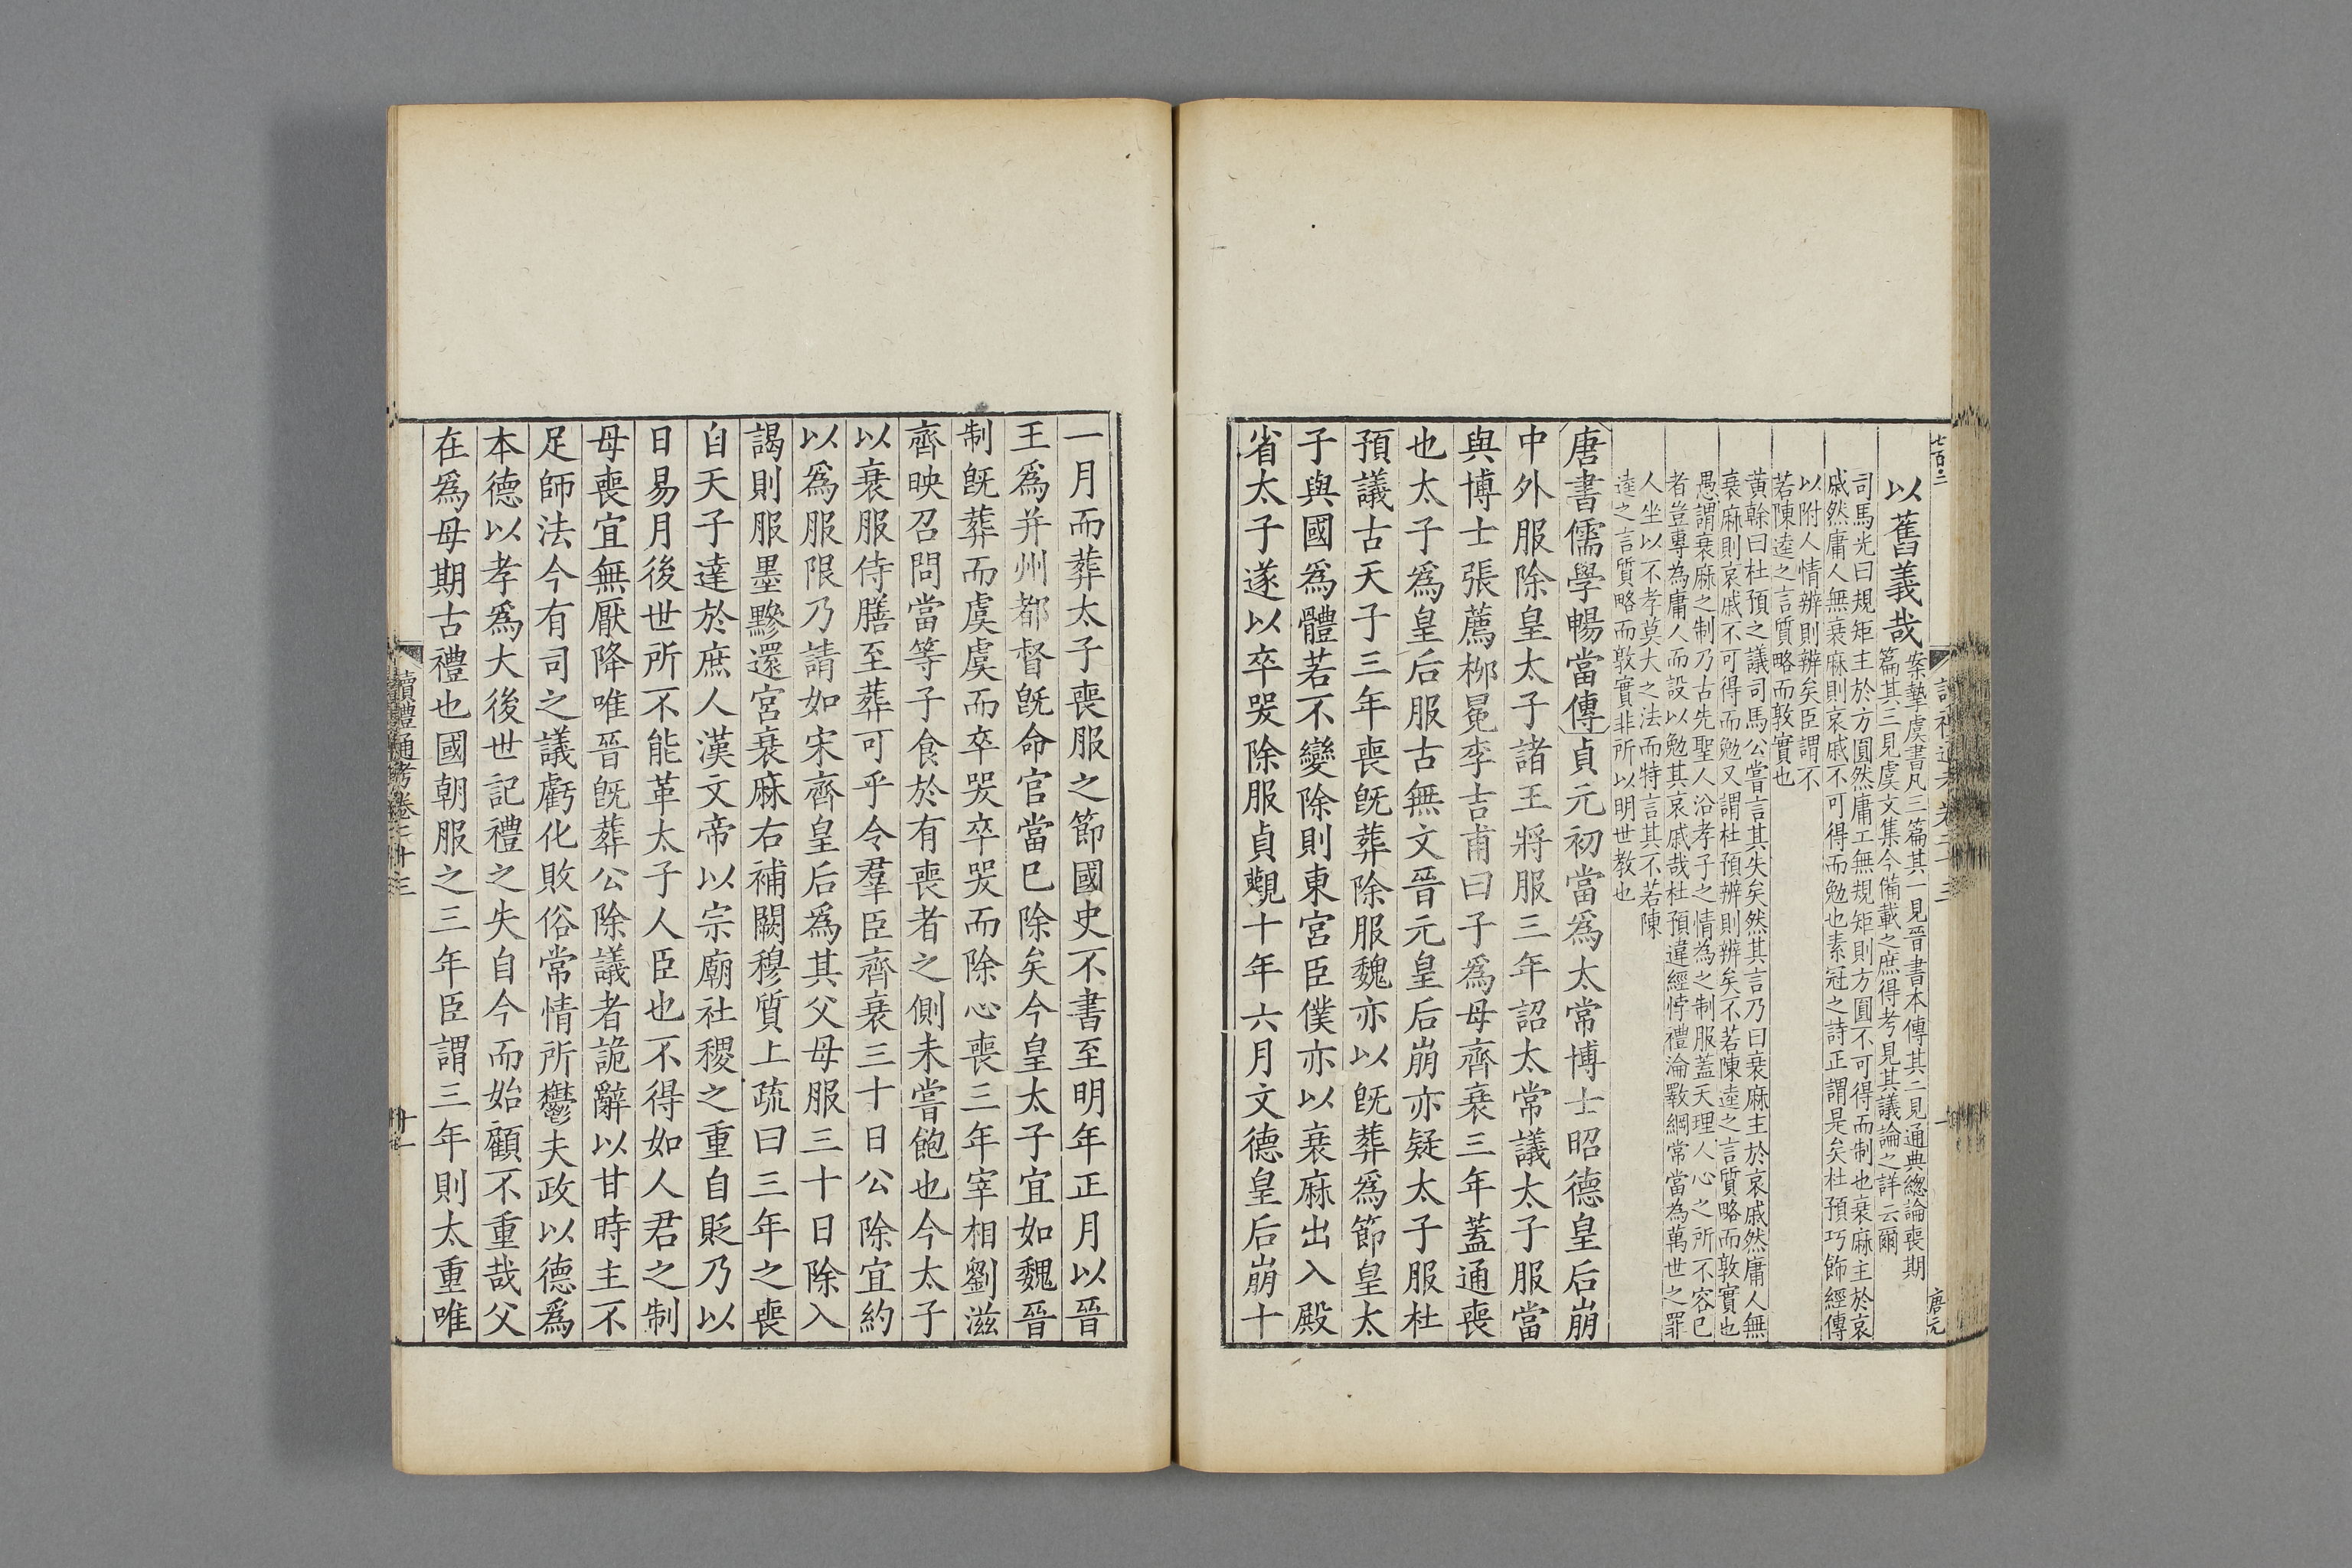 七百三
以舊義哉
案摯虞書凡三篇其一見晉書本傳其二見通典總論喪期
篇其三見虞文集今備載之庶得考見其議論之詳云爾
司馬光曰規矩主於方圓然庸工無規矩則方圓不可得而制也衰麻主於哀
戚然庸人無衰麻則哀戚不可得而勉也素冠之詩正謂是矣杜預巧飾經傳
以附人情辨則辨矣臣謂不
若陳逵之言質略而敦實也
黃榦曰杜預之議司馬公嘗言其失矣然其言乃曰衰麻主於哀戚然庸人無
衰麻則哀戚不可得而勉又謂杜預辨則辨矣不若陳逵之言質略而敦實也
愚謂衰麻之制乃古先聖人沿孝子之情為之制服蓋天理人心之所不容已
者豈專為庸人而設以勉其哀戚哉杜預違經悖禮淪斁綱常當為萬世之罪
人坐以不孝莫大之法而特言其不若陳
逵之言質略而敦實非所以明世教也
唐書儒學暢當傳貞元初當爲太常博士昭德皇后崩
中外服除皇太子諸王將服三年詔太常議太子服當
與博士張薦柳冕李吉甫曰子爲母齊衰三年蓋通喪
也太子爲皇后服古無文晉元皇后崩亦疑太子服杜
預議古天子三年喪旣葬除服魏亦以旣葬爲節皇太
子與國爲體若不變除則東宮臣僕亦以衰麻出入殿
省太子遂以卒哭除服貞觀十年六月文德皇后崩十
唐元
一月而葬太子喪服之節國史不書至明年正月以晉
王爲并州都督旣命官當已除矣今皇太子宜如魏晉
制旣葬而虞虞而卒哭卒哭而除心喪三年宰相劉滋
齊映召問當等子食於有喪者之側未嘗飽也今太子
以衰服侍膳至葬可乎令羣臣齊衰三十日公除宜約
以爲服限乃請如宋齊皇后爲其父母服三十日除入
謁則服墨黲還宮衰麻右補闕穆質上疏曰三年之喪
自天子達於庶人漢文帝以宗廟社稷之重自貶乃以
日易月後世所不能革太子人臣也不得如人君之制
母喪宜無厭降唯晉旣葬公除議者詭辭以甘時主不
足師法今有司之議虧化敗俗常情所鬱夫政以德爲
本德以孝爲大後世記禮之失自今而始顧不重哉父
在爲母期古禮也國朝服之三年臣謂三年則太重唯
讀禮通考卷二十三
十一